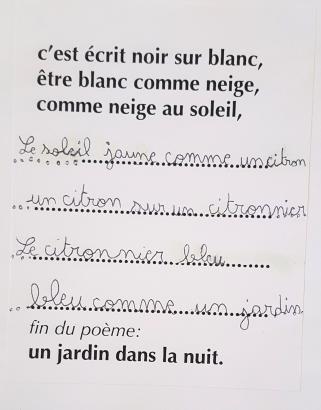 c'est écrit noir sur blanc,
être blanc comme neige,
comme neige au soleil,
Le soleil jaune comme un citron
un citron sur un citronnier
Le citronnier bleu
bleu comme un jardin
fin du poème:
un jardin dans la nuit.